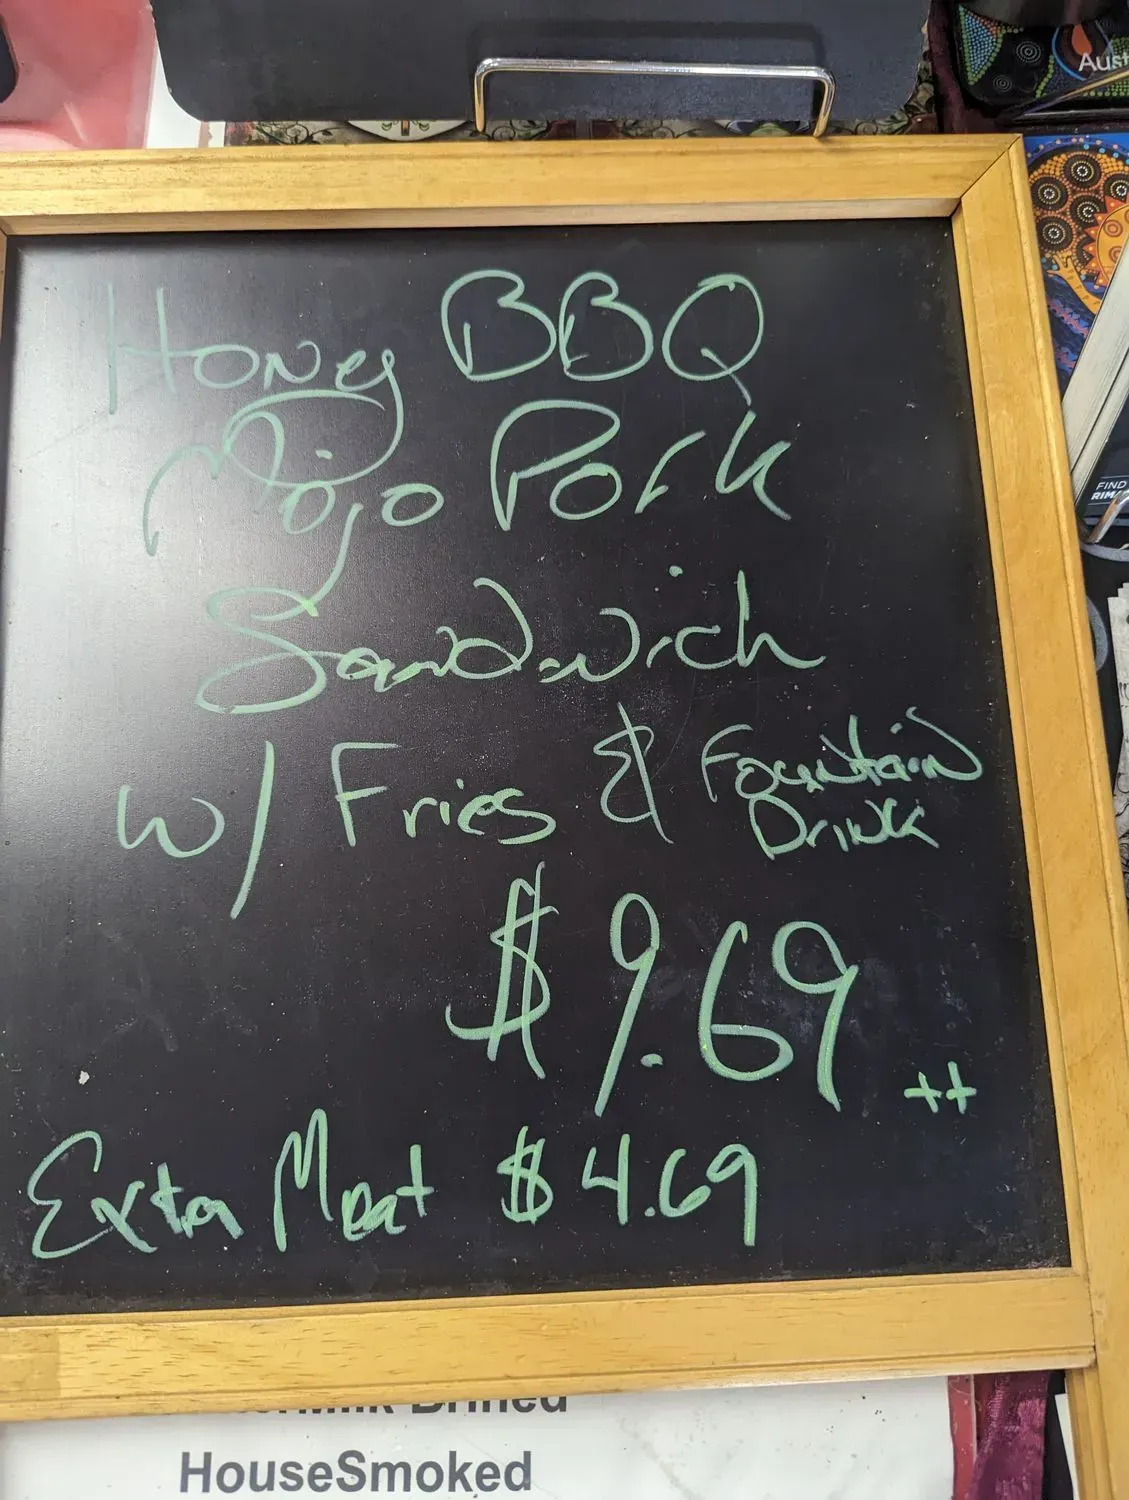 Aust
Honey BBQ
Mojo Pork
Sandwich
w/ Fries & Fountain
Drink
$9.69 ++
Extra Meat $4.69
FIND
RIM
Brined
HouseSmoked